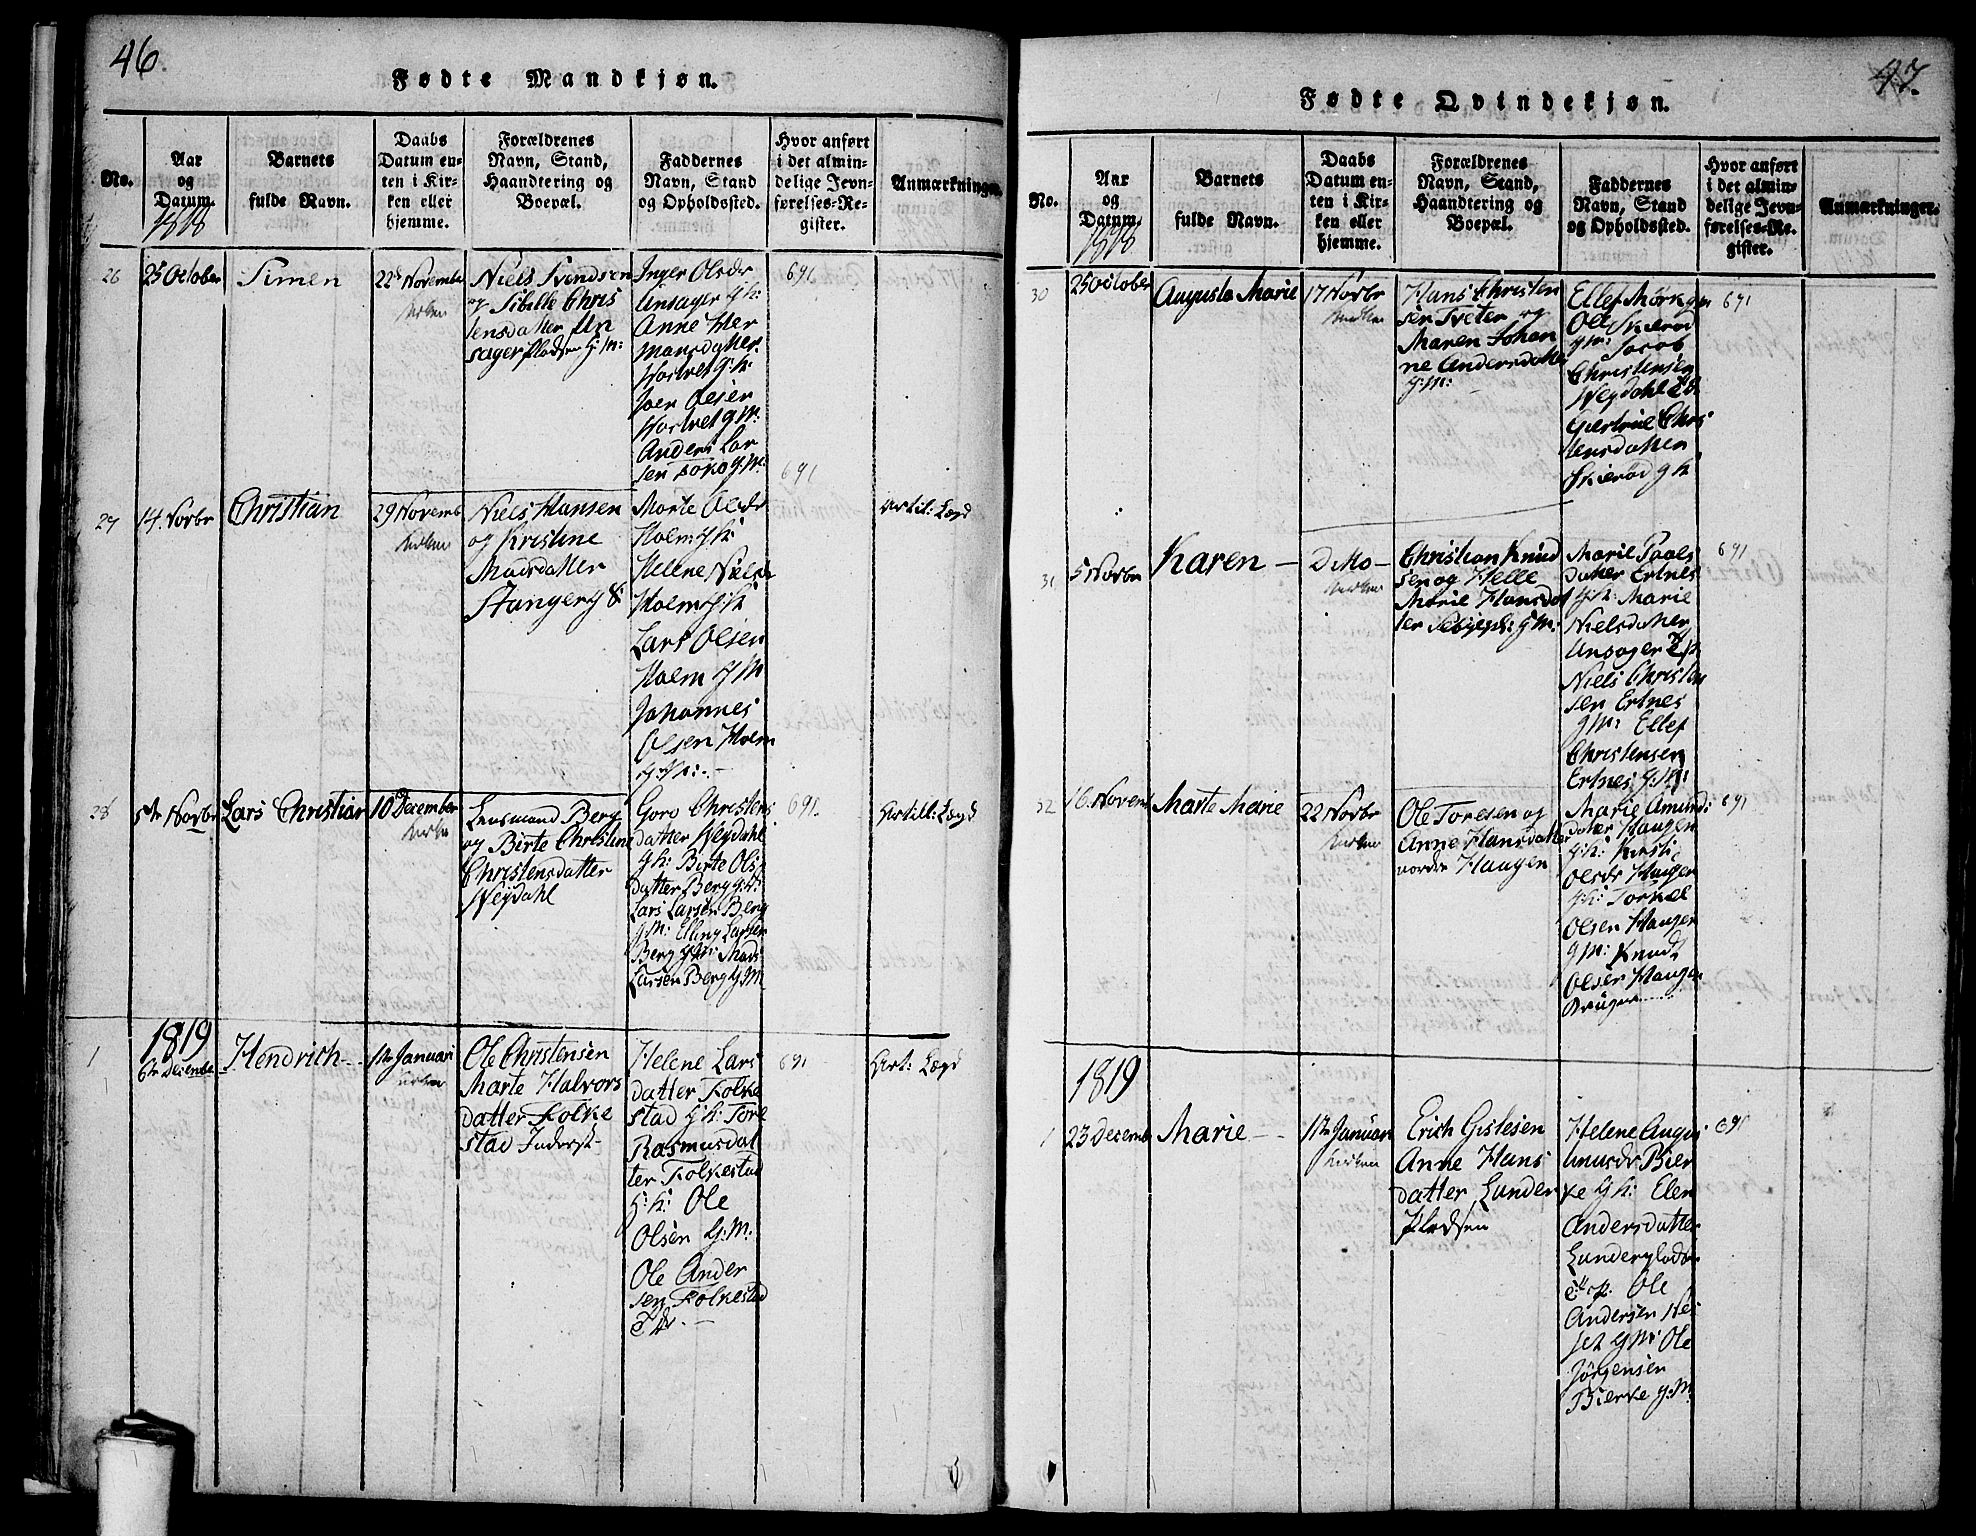 46.
Fødte Mandkjøn.
No.
Aar
og
Datum.
1818
Barnets
fulde Navn.
Daabs
Datum en-
ten i Kir-
ken eller
hjemme.
Forældrenes
Navn, Stand,
Haandtering og
Boepæl.
Faddernes
Navn, Stand
og Opholdssted.
Hvor anført
i det almin-
delige Jevn-
førelses-Re-
gister.
Anmærkninger.
26
25 October
Simen
22 Novembe
Niels Svendsen
og Sibille Chris
tensdatter Un
sager Pladsen G: M:
Inger Olsdr
Unsager G: K:
Anne Her
mansdatter
G: K:
Joer Olsen
G M:
Anders Lar
sen G: M:
691
691
27
14 Novbr
Christian
29 Novemb
Niels Hansen
og Kristine
Madsdatter
Stanger G
Marte Olsdr
Holm G K:
Helene Nielsdr
Holm G K
Lars Olsen
Holm G M
Johannes
Olsen Holm
Artil: Lægd
28
5te Novbr
Lars Christian
10 December
Lensmand Berg
og Birte Christine
Christensdatter
Neydahl
Goro Christens
datter Neydahl
G K: Birte Ols
datter Berg G: K:
Lars Larsen Berg
G M: Elling Larsen
Berg G M: Mads
Larsen Berg G M
691.
Artill: Lægd
1819
1
6te Decembe
Hendrich
1te Januari
Ole Christensen
Marte Halvors
datter Folke
stad Inderst
Helene Lars
datter Folke
stad G K: Tore
Rasmusdat
ter Folkestad
G: K: Ole
Olsen G: M:
Ole Ander
sen Folkestad
691
Art: Lægd
47.
Fødte Qvindekjøn.
No.
Aar
og
Datum.
1818
Barnets
fulde Navn.
Daabs
Datum en-
ten i Kir-
ken eller
hjemme.
Forældrenes
Navn, Stand,
Haandtering og
Boepæl.
Faddernes
Navn, Stand
og Opholdssted.
Hvor anført
i det almin-
delige Jevn-
førelses-Re-
gister.
Anmærkninger.
30
25 October
Augusta Marie
17 Novbr
Hans Christen
sen Tveter og
Maren Johan
ne Andersdatter
G: M:
Ellef Mørk G M
Ole Skierød
G M: Jacob
Christensen
Neydahl
Giertrue Chris
tensdatter
Skierød G K
691
31
5 Novbr
Karen
Ditto
Christian Knud
sen og Helle
Marie Hansdat
ter G M:
Marie Paals
datter Ertnes
G K: Marie
Nielsdatter
Unsager
Niels Christen
sen Ertnes
G M: Ellef
Christensen
Ertnes G: M:
691
32
16 Novem
Marte Marie
22 Novbr
Ole Toresen og
Anne Hansdatter
nordre Haugen
Marie Amund:
datter Haugen
G: K: Kirsti
Olsdr Haugen
G K: Torkel
Olsen Haugen
G M: Knud
Olsen Haugen
Bruger
691
1819
1
23 Decemb
Marie
1te Januari
Erich Gislesen
Anne Hans
datter Lunder
Pladsen
Helene Augus
tinusdr Bier
ke G K: Elen
Andersdatter
Lunderplads
Ole
Andersen
G M: Ole
Jørgensen
Bierke G: M:
691